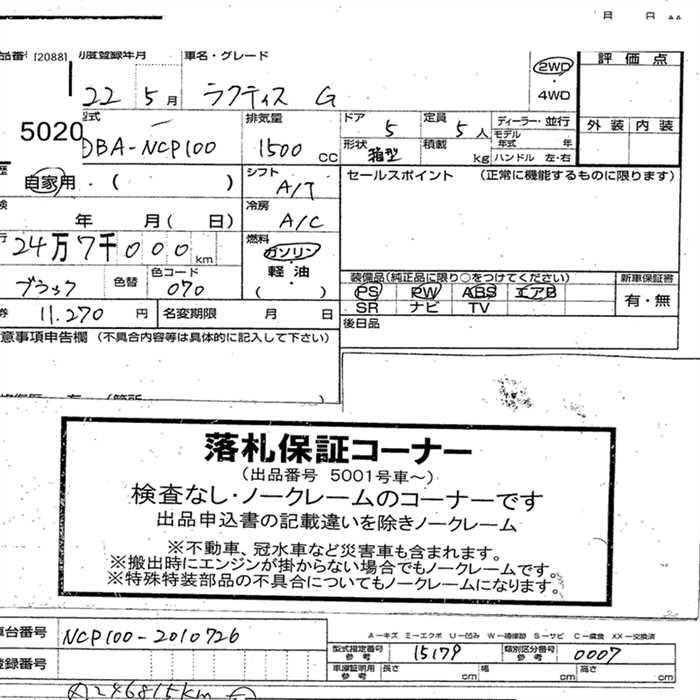 月 日
出品番 [2088] 初度登録年月 車名・グレード 2WD 評価点
22 5月 ラクティス G 4WD
5020 型式 排気量 ドア 定員 ディーラー・並行 外装 内装
DBA-NCP100 1500 cc 5 5人 モデル年式 年
形状 箱型 積載 kg ハンドル 左・右
自家用・( ) シフト A/T セールスポイント (正常に機能するものに限ります)
年 月( 日) 冷房 A/C
24万7千000km 燃料 ガソリン・軽油 ( )
ブラック 色替 色コード 070 装備品(純正品に限り○をつけてください) 新車保証書
PS PW ABS エアB 有・無
SR ナビ TV
券 11,270円 名変期限 月 日 後日品
注意事項申告欄 (不具合内容等は具体的に記入して下さい)
落札保証コーナー
(出品番号 5001号車~)
検査なし・ノークレームのコーナーです
出品申込書の記載違いを除きノークレーム
※不動車、冠水車など災害車も含まれます。
※搬出時にエンジンが掛からない場合でもノークレームです。
※特殊特装部品の不具合についてもノークレームになります。
車台番号 NCP100-2010726 A-キズ E-エクボ U-凹み W-補修跡 S-サビ C-腐食 XX-交換済
型式指定番号 参考 15179 類別区分番号 参考 0007
登録番号 車庫証明用 参考 長さ cm 幅 cm 高さ cm
246815km